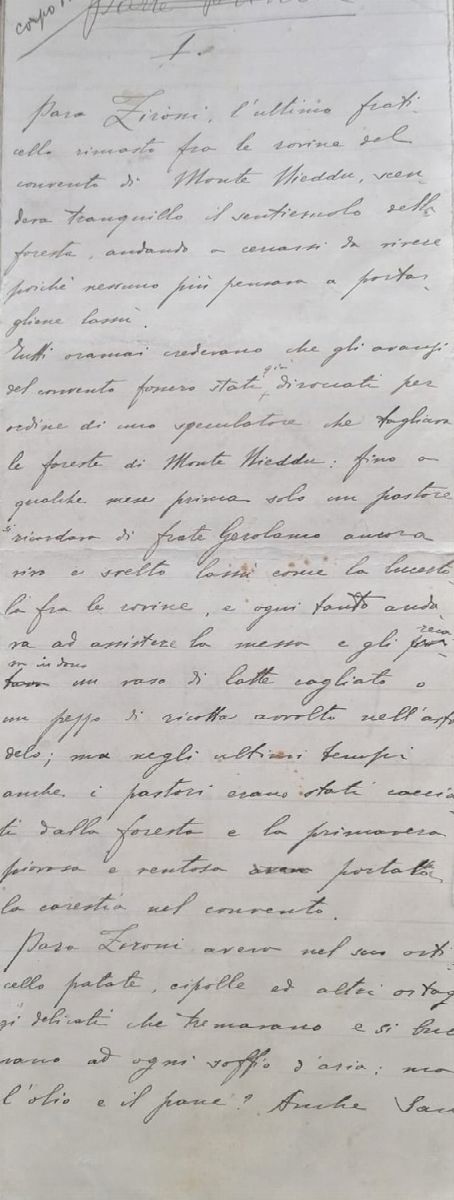 corpo
Parte
1.
Para Zironi, l'ultimo frati-
cello rimasto fra le rovine del
convento di Monte Nieddu, scen-
deva tranquillo il sentieruolo della
foresta, andando a cercarsi da vivere
poichè nessuno più pensava a portar-
gliene lassù.
Tutti oramai credevano che gli avanzi
del convento fossero stati già diroccati per
ordine di uno speculatore che tagliava
le foreste di Monte Nieddu: fino a
qualche mese prima solo un pastore
si ricordava di frate Gerolamo ancora
vivo e svelto lassù come la lucerto-
la fra le rovine, e ogni tanto anda-
va ad assistere la messa e gli reca-
va in dono un vaso di latte cagliato o
un pezzo di ricotta avvolto nell'asfo
delo; ma negli ultimi tempi
anche i pastori erano stati caccia-
ti dalla foresta e la primavera
piovosa e ventosa portata
la carestia nel convento.
Para Zironi aveva nel suo orti-
cello patate, cipolle ed altri ortag
gi delicati che tremavano e si buc
vano ad ogni soffio d'aria: ma
l'olio e il pane? Anche San